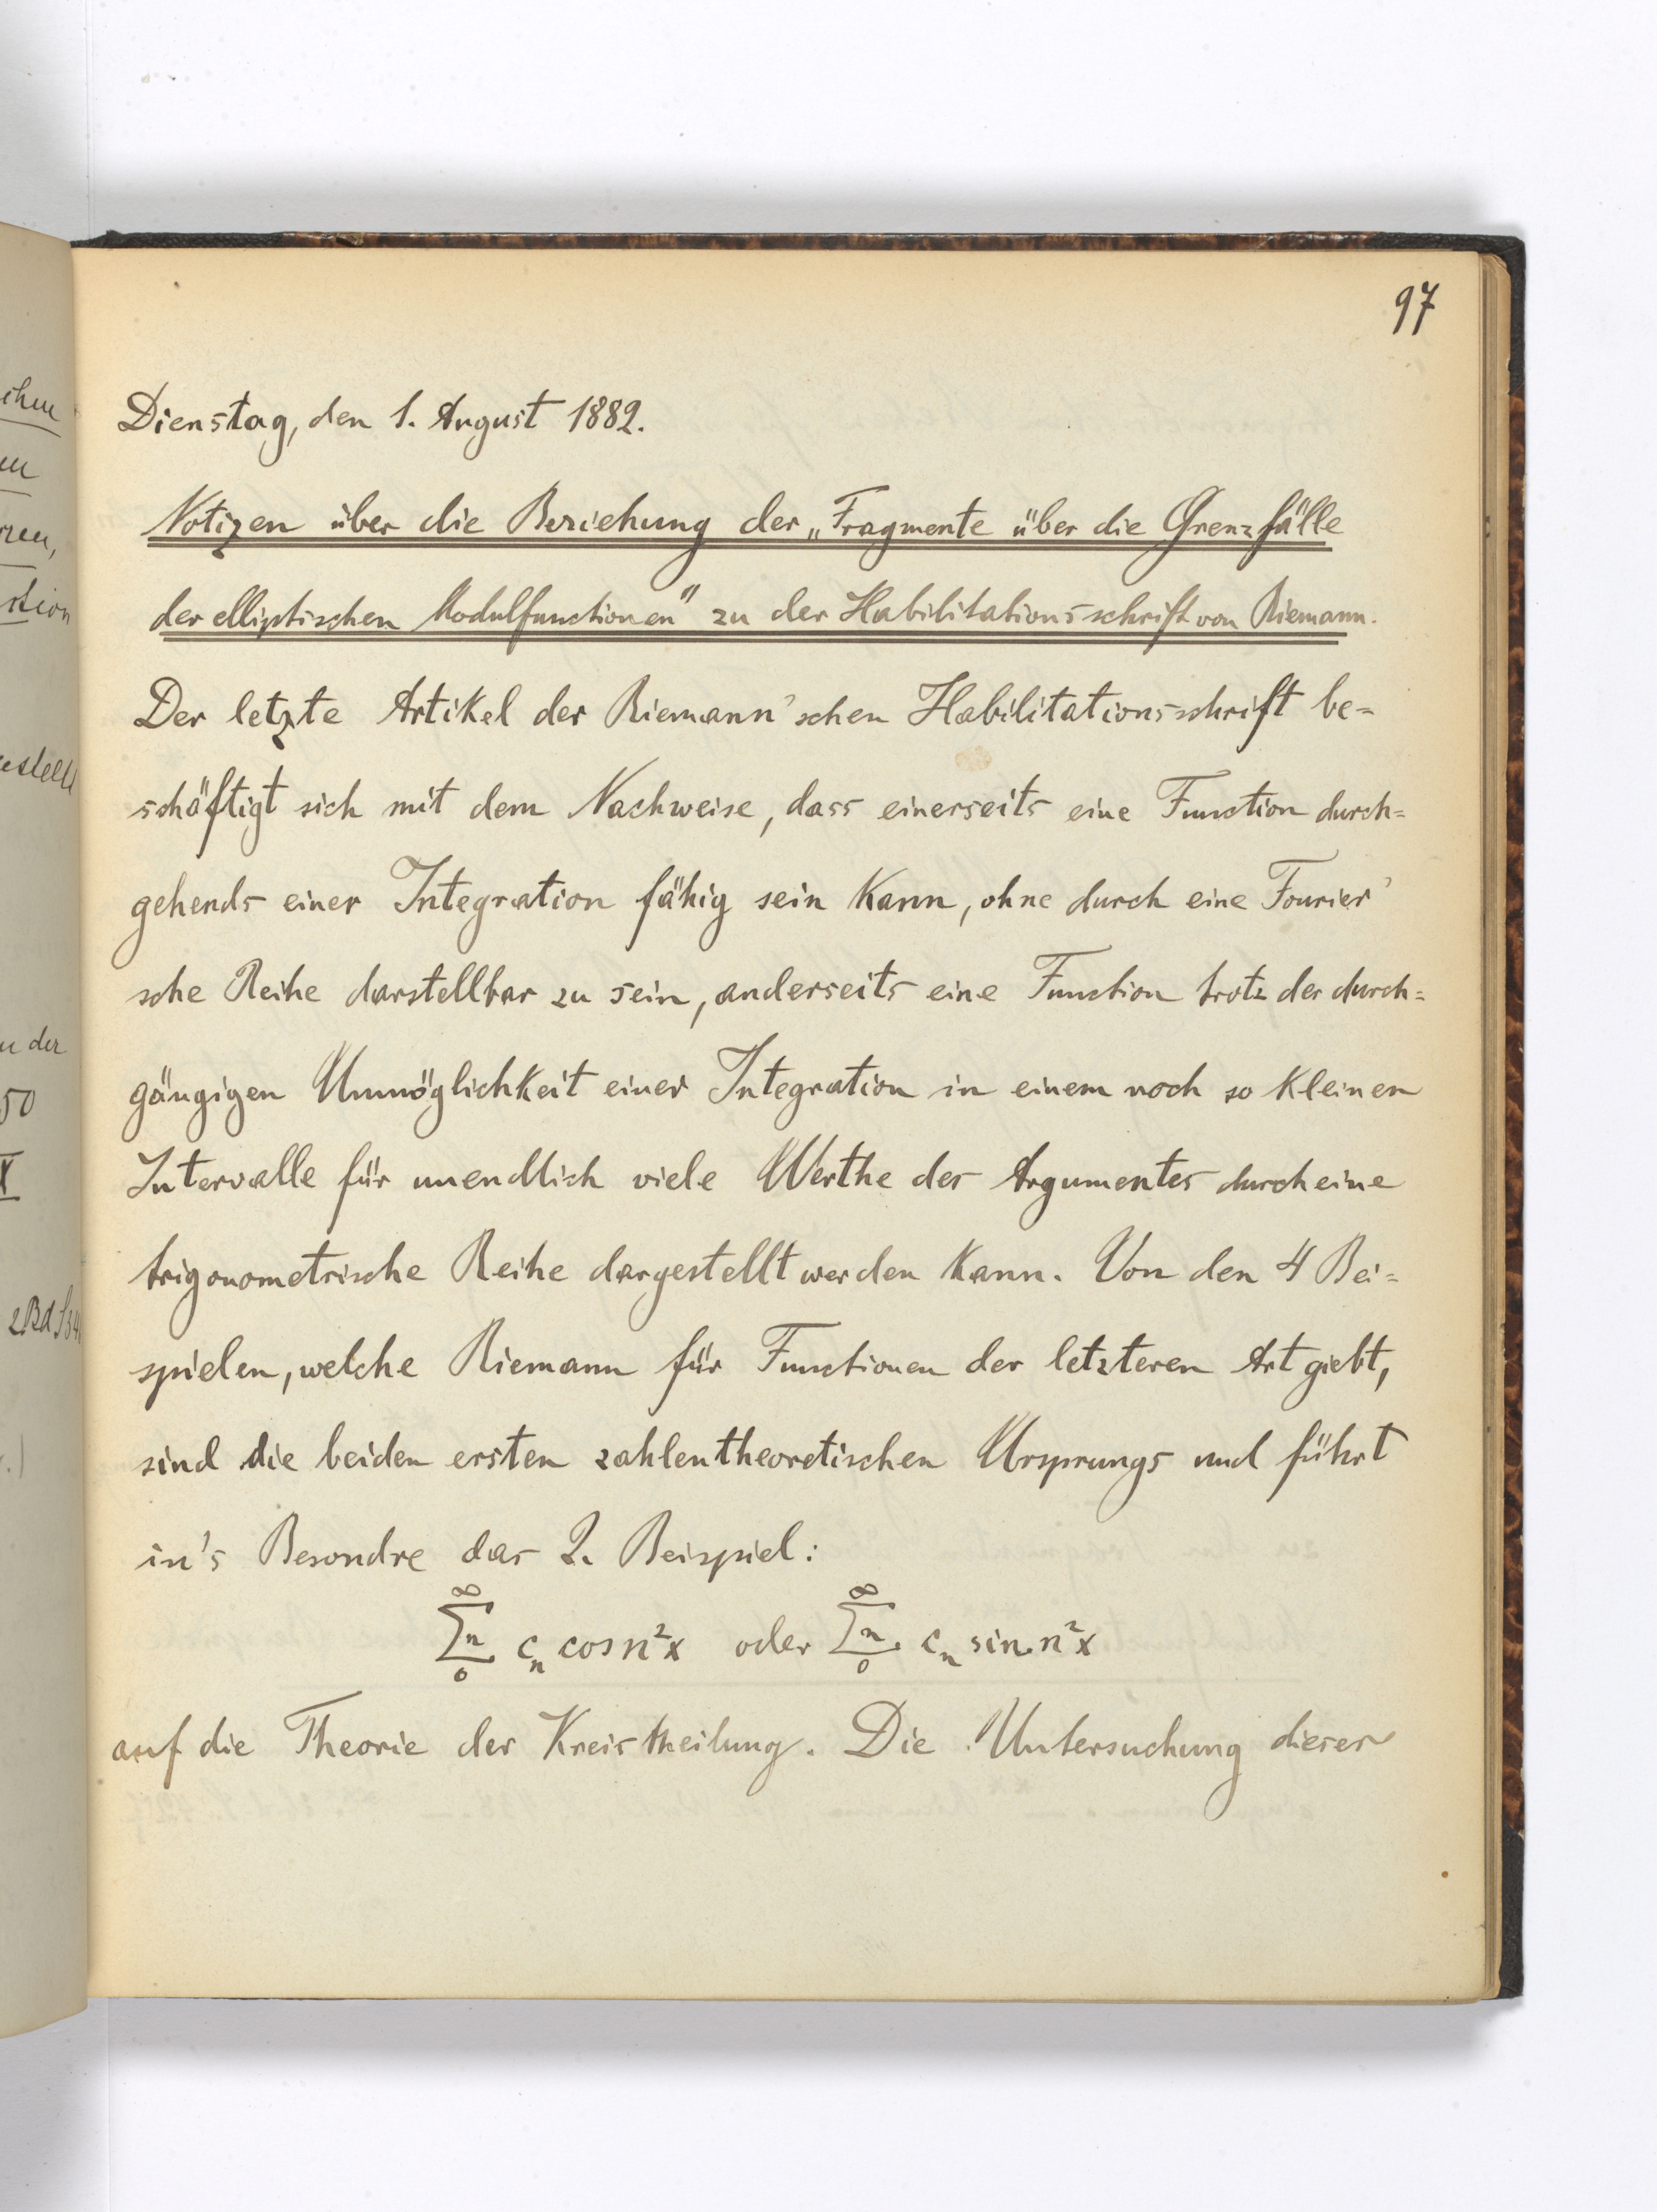 97
Dienstag, den 1. August 1882.
Notizen über die Beziehung der „Fragmente über die Grenzfälle
der elliptischen Modulfunctionen" zu der Habilitationsschrift von Riemann.
Der letzte Artikel der Riemann'schen Habilitationsschrift be=
schäftigt sich mit dem Nachweise, dass einerseits eine Function durch=
gehends einer Integration fähig sein kann, ohne durch eine Fourier'
sche Reihe darstellbar zu sein, anderseits eine Function trotz der durch=
gängigen Unmöglichkeit einer Integration in einem noch so kleinen
Intervalle für unendlich viele Werthe des Argumentes durch eine
trigonometrische Reihe dargestellt werden kann. Von den 4 Bei=
spielen, welche Riemann für Functionen der letzteren Art giebt,
sind die beiden ersten zahlentheoretischen Ursprungs und führt
in's Besondre das 2. Beispiel:
∞∑n0 cn cos n²x oder ∞∑n0 cn sin n²x
auf die Theorie der Kreistheilung. Die Untersuchung dieser